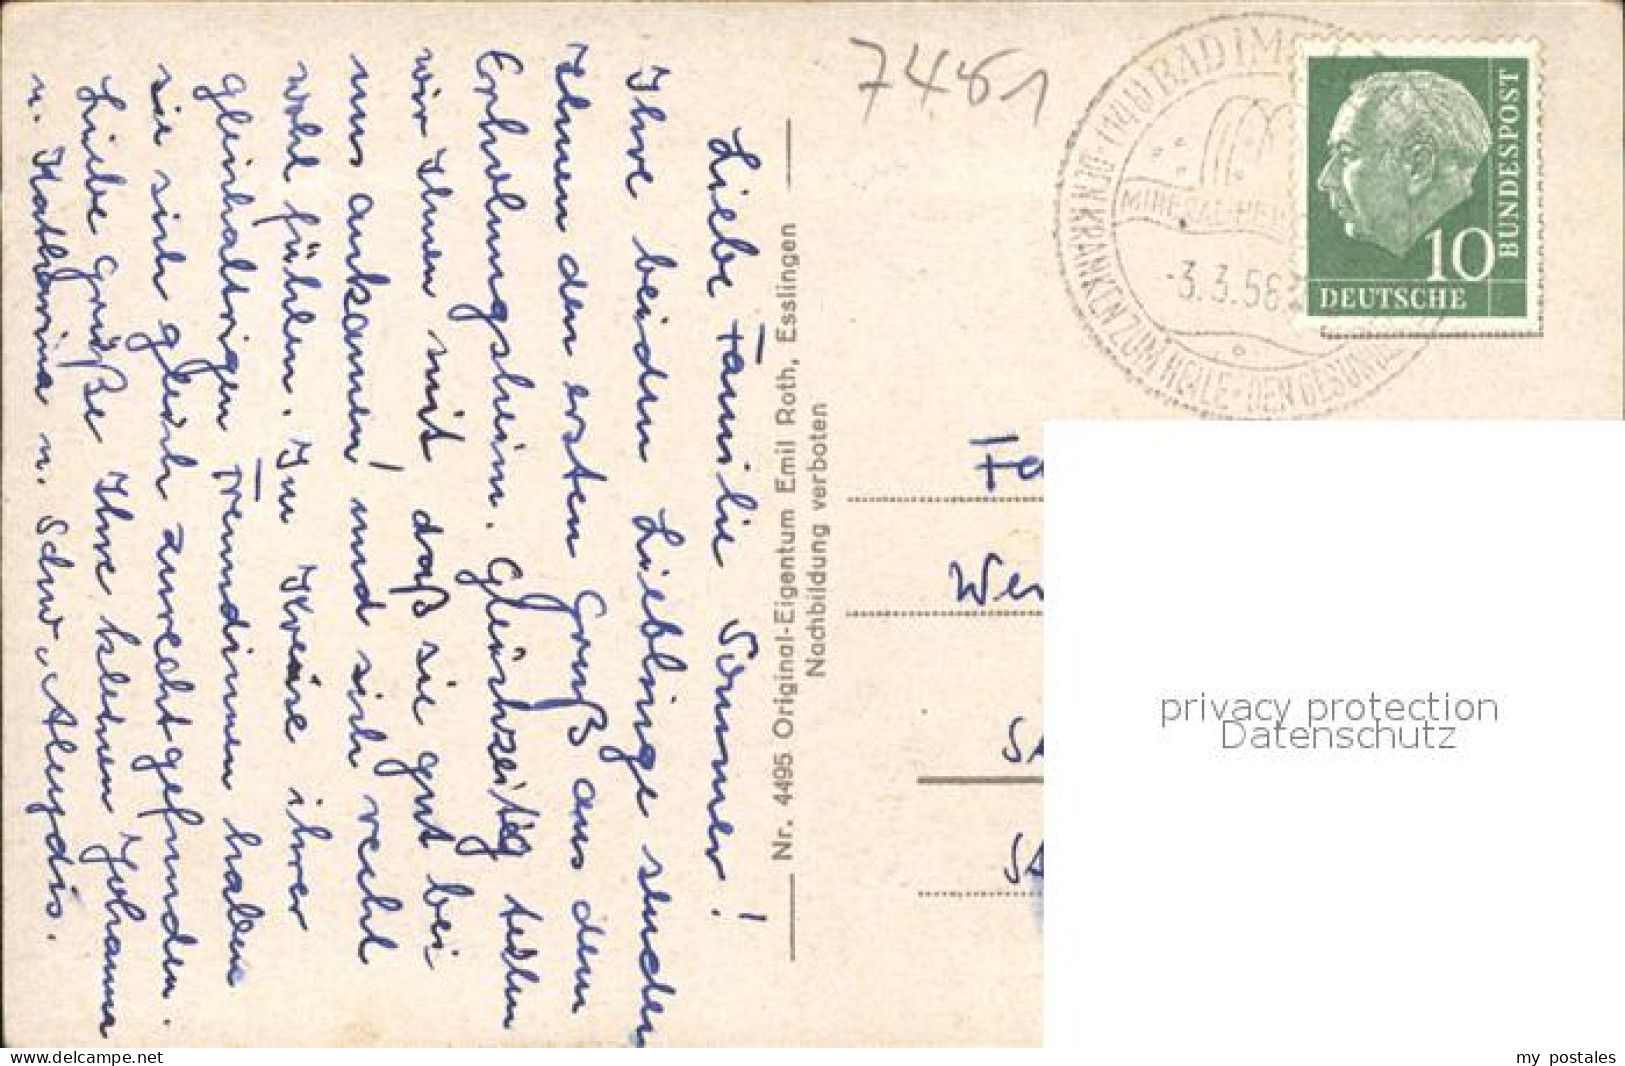 Liebe Familie Sommer!
Ihre beiden Lieblinge senden
Ihnen den ersten Gruß aus dem
Erholungsheim. Gleichzeitig teilen
wir Ihnen mit daß sie gut bei
uns ankamen und sich recht
wohl fühlen. Im Kreise ihrer
gleichaltrigen Freundinnen haben
sie sich gleich zurechtgefunden.
Liebe Grüße Ihre kleinen Johanna
u. Katharina u. Schw. Aleydis.
Nr. 4495 Original-Eigentum Emil Roth, Esslingen
Nachbildung verboten
7481
(14b) BAD IM
MINERAL-HEI
-3.3.56
DEN KRANKEN ZUM HEILE - DEN GESUND
10
DEUTSCHE
BUNDESPOST
Wer
privacy protection
Datenschutz
ak-ansichtskarten.com
my postales